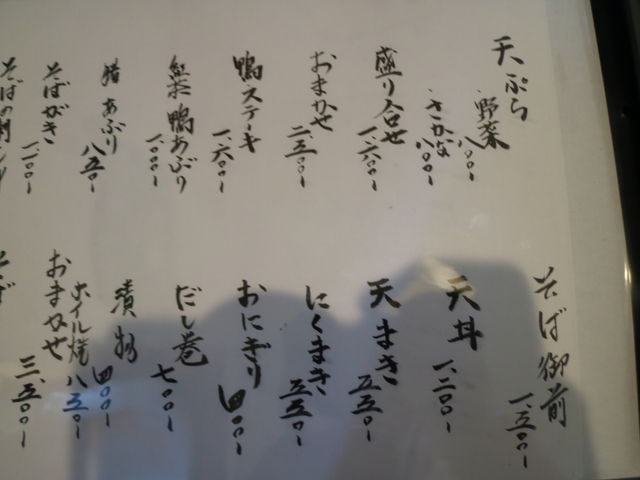 天ぷら
野菜 八〇〇ー
さかな 八〇〇ー
盛り合せ 一、六〇〇ー
おまかせ 二、五〇〇ー
鴨ステーキ 一、六〇〇ー
鴨あぶり 一、〇〇〇ー
あぶり 八五〇ー
そばがき 一、一〇〇ー
そばの刺
そば御前 一、五〇〇ー
天丼 一、二〇〇ー
天まき 五五〇ー
にくまき 五五〇ー
おにぎり 四〇〇ー
だし巻 七〇〇ー
漬物 四〇〇ー
ホイル焼 八五〇ー
おまかせ 三、五〇〇ー
そば